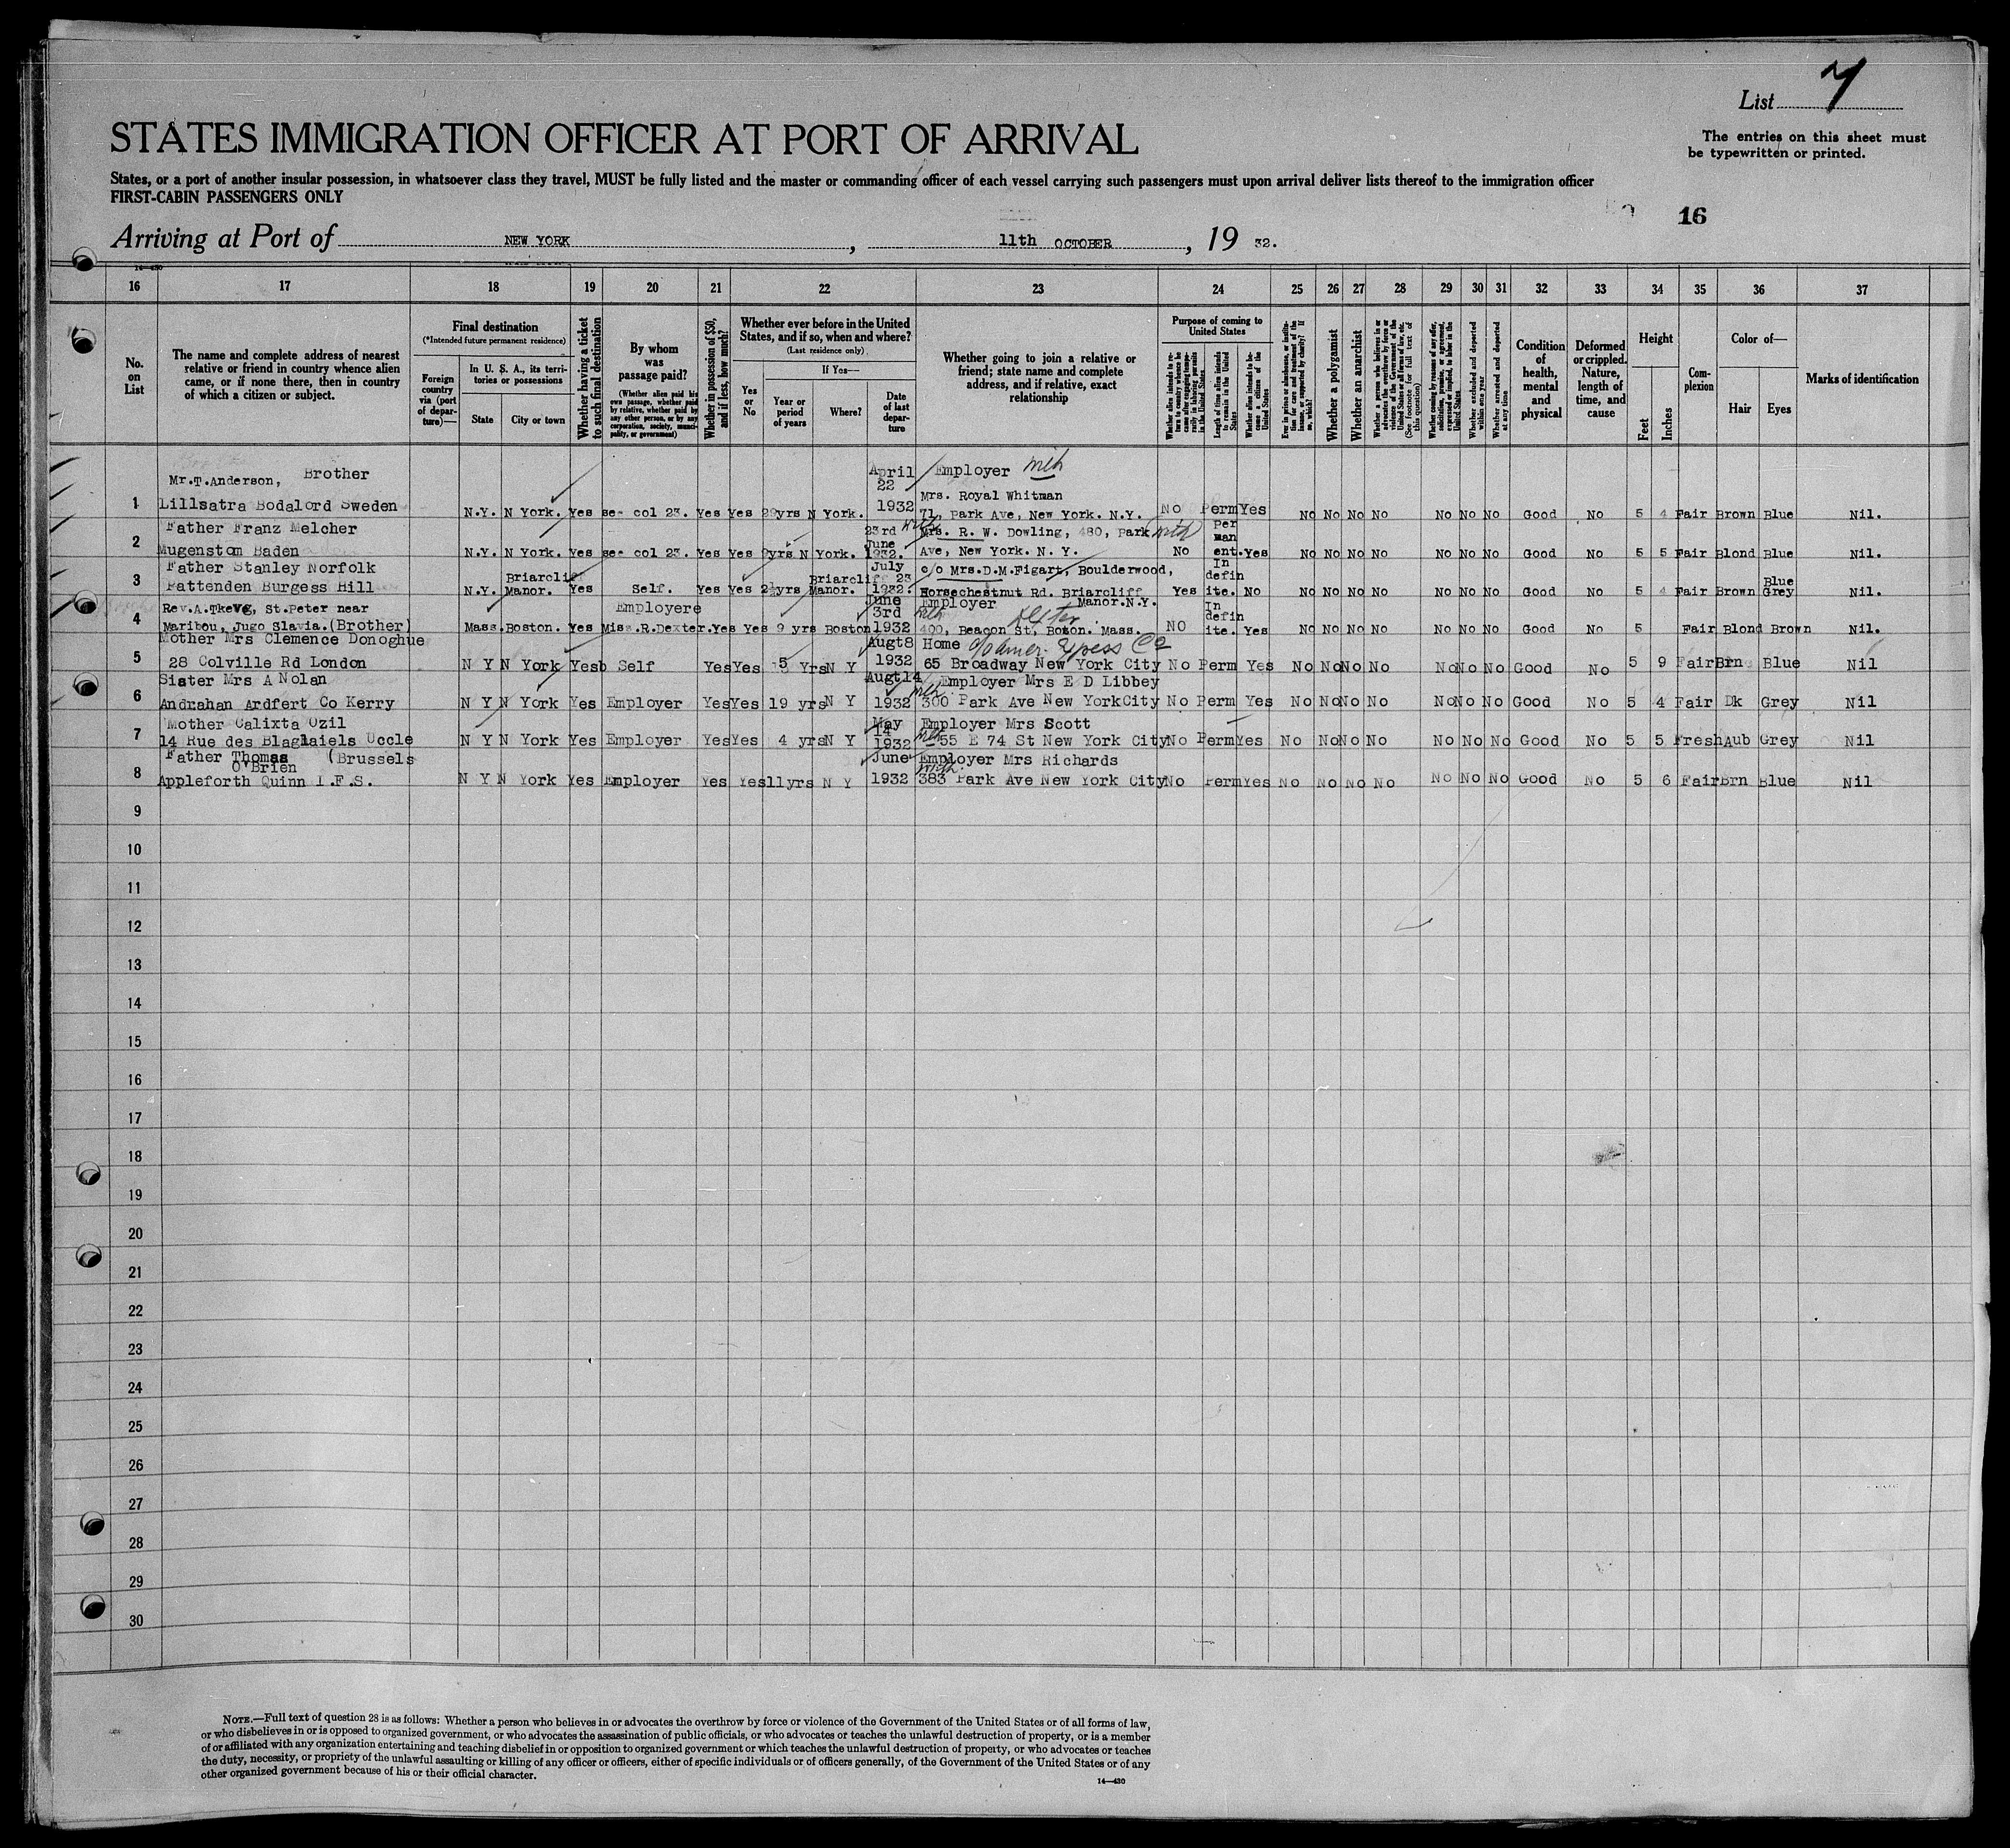 List 7
STATES IMMIGRATION OFFICER AT PORT OF ARRIVAL
The entries on this sheet must
be typewritten or printed.
States, or a port of another insular possession, in whatsoever class they travel, MUST be fully listed and the master or commanding officer of each vessel carrying such passengers must upon arrival deliver lists thereof to the immigration officer
FIRST-CABIN PASSENGERS ONLY
16
Arriving at Port of NEW YORK, 11th OCTOBER, 19 32.
14—430
16 17 18 19 20 21 22 23 24 25 26 27 28 29 30 31 32 33 34 35 36 37
No. on List
The name and complete address of nearest relative or friend in country whence alien came, or if none there, then in country of which a citizen or subject.
Final destination
(*Intended future permanent residence)
Foreign country via (port of departure)—
In U. S. A., its territories or possessions
State City or town
Whether having a ticket to such final destination
By whom was passage paid?
(Whether alien paid his own passage, whether paid by relative, whether paid by any other person, or by any corporation, society, municipality, or government)
Whether in possession of $50, and if less, how much?
Whether ever before in the United States, and if so, when and where?
(Last residence only)
Yes or No
If Yes—
Year or period of years Where? Date of last departure
Whether going to join a relative or friend; state name and complete address, and if relative, exact relationship
Purpose of coming to United States
Length of time alien intends to remain in the United States
Whether alien intends to become a citizen of the United States
Whether a polygamist
Whether an anarchist
(See footnote for full text of this question)
Whether excluded and deported within one year
Whether arrested and deported at any time
Condition of health, mental and physical
Deformed or crippled. Nature, length of time, and cause
Height
Feet Inches
Complexion
Color of—
Hair Eyes
Marks of identification
Mr.T.Anderson, Brother April 22 Employer
1 Lillsatra Bodalord Sweden N.Y. N York. Yes see col 23. Yes Yes 29yrs N York. 1932 Mrs. Royal Whitman 71, Park Ave, New York. N.Y. No Perm Yes No No No No No No No Good No 5 4 Fair Brown Blue Nil.
Father Franz Melcher 23rd June Mrs. R. W. Dowling, 480, Park Per man
2 Mugenstom Baden N.Y. N York. Yes see col 23. Yes Yes 9yrs N York. 1932. Ave, New York. N. Y. No ent. Yes No No No No No No No Good No 5 5 Fair Blond Blue Nil.
Father Stanley Norfolk Briarcliff Briarcliff July 23 c/o Mrs.D.M.Figart, Boulderwood, In defin
3 Pattenden Burgess Hill N.Y. Manor. Yes Self. Yes Yes 2½yrs Manor. 1932. Horsechestnut Rd. Briarcliff Manor.N.Y. Yes ite. No No No No No No No No Good No 5 4 Fair Brown Blue Grey Nil.
Rev.A.Tkevg, St.Peter near Employere June 3rd Employer In defin
4 Maribou, Jugo Slavia.(Brother) Mass.Boston. Yes Miss.R.Dexter.Yes Yes 9 yrs Boston 1932 Dexter 400, Beacon St, Boton. Mass. NO ite. Yes No No No No No No No Good No 5 Fair Blond Brown Nil.
Mother Mrs Clemence Donoghue Augt8 Home c/o Amer. Express Co
5 28 Colville Rd London N Y N York Yesb Self Yes Yes 5 Yrs N Y 1932 65 Broadway New York City No Perm Yes No No No No No No No Good No 5 9 Fair Brn Blue Nil
Sister Mrs A Nolan Augt14 Employer Mrs E D Libbey
6 Andrahan Ardfert Co Kerry N Y N York Yes Employer Yes Yes 19 yrs N Y 1932 300 Park Ave New YorkCity No Perm Yes No No No No No No No Good No 5 4 Fair Dk Grey Nil
Mother Calixta Ozil May 14 Employer Mrs Scott
7 14 Rue des Blaglaiels Uccle (Brussels N Y N York Yes Employer Yes Yes 4 yrs N Y 1932 55 E 74 St New York City No Perm Yes No No No No No No No Good No 5 5 Fresh Aub Grey Nil
Father Thomas O'Brien June Employer Mrs Richards
8 Appleforth Quinn I.F.S. N Y N York Yes Employer Yes Yes 11yrs N Y 1932 383 Park Ave New York City No Perm Yes No No No No No No No Good No 5 6 Fair Brn Blue Nil
9
10
11
12
13
14
15
16
17
18
19
20
21
22
23
24
25
26
27
28
29
30
NOTE.—Full text of question 28 is as follows: Whether a person who believes in or advocates the overthrow by force or violence of the Government of the United States or of all forms of law,
or who disbelieves in or is opposed to organized government, or who advocates the assassination of public officials, or who advocates or teaches the unlawful destruction of property, or is a member
of or affiliated with any organization entertaining and teaching disbelief in or opposition to organized government or which teaches the unlawful destruction of property, or who advocates or teaches
the duty, necessity, or propriety of the unlawful assaulting or killing of any officer or officers, either of specific individuals or of officers generally, of the Government of the United States or of any
other organized government because of his or their official character.
14—430